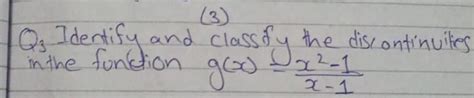 (3)
Q3 Identify and classify the discontinuities
in the function g(x) = x²-1 / x-1